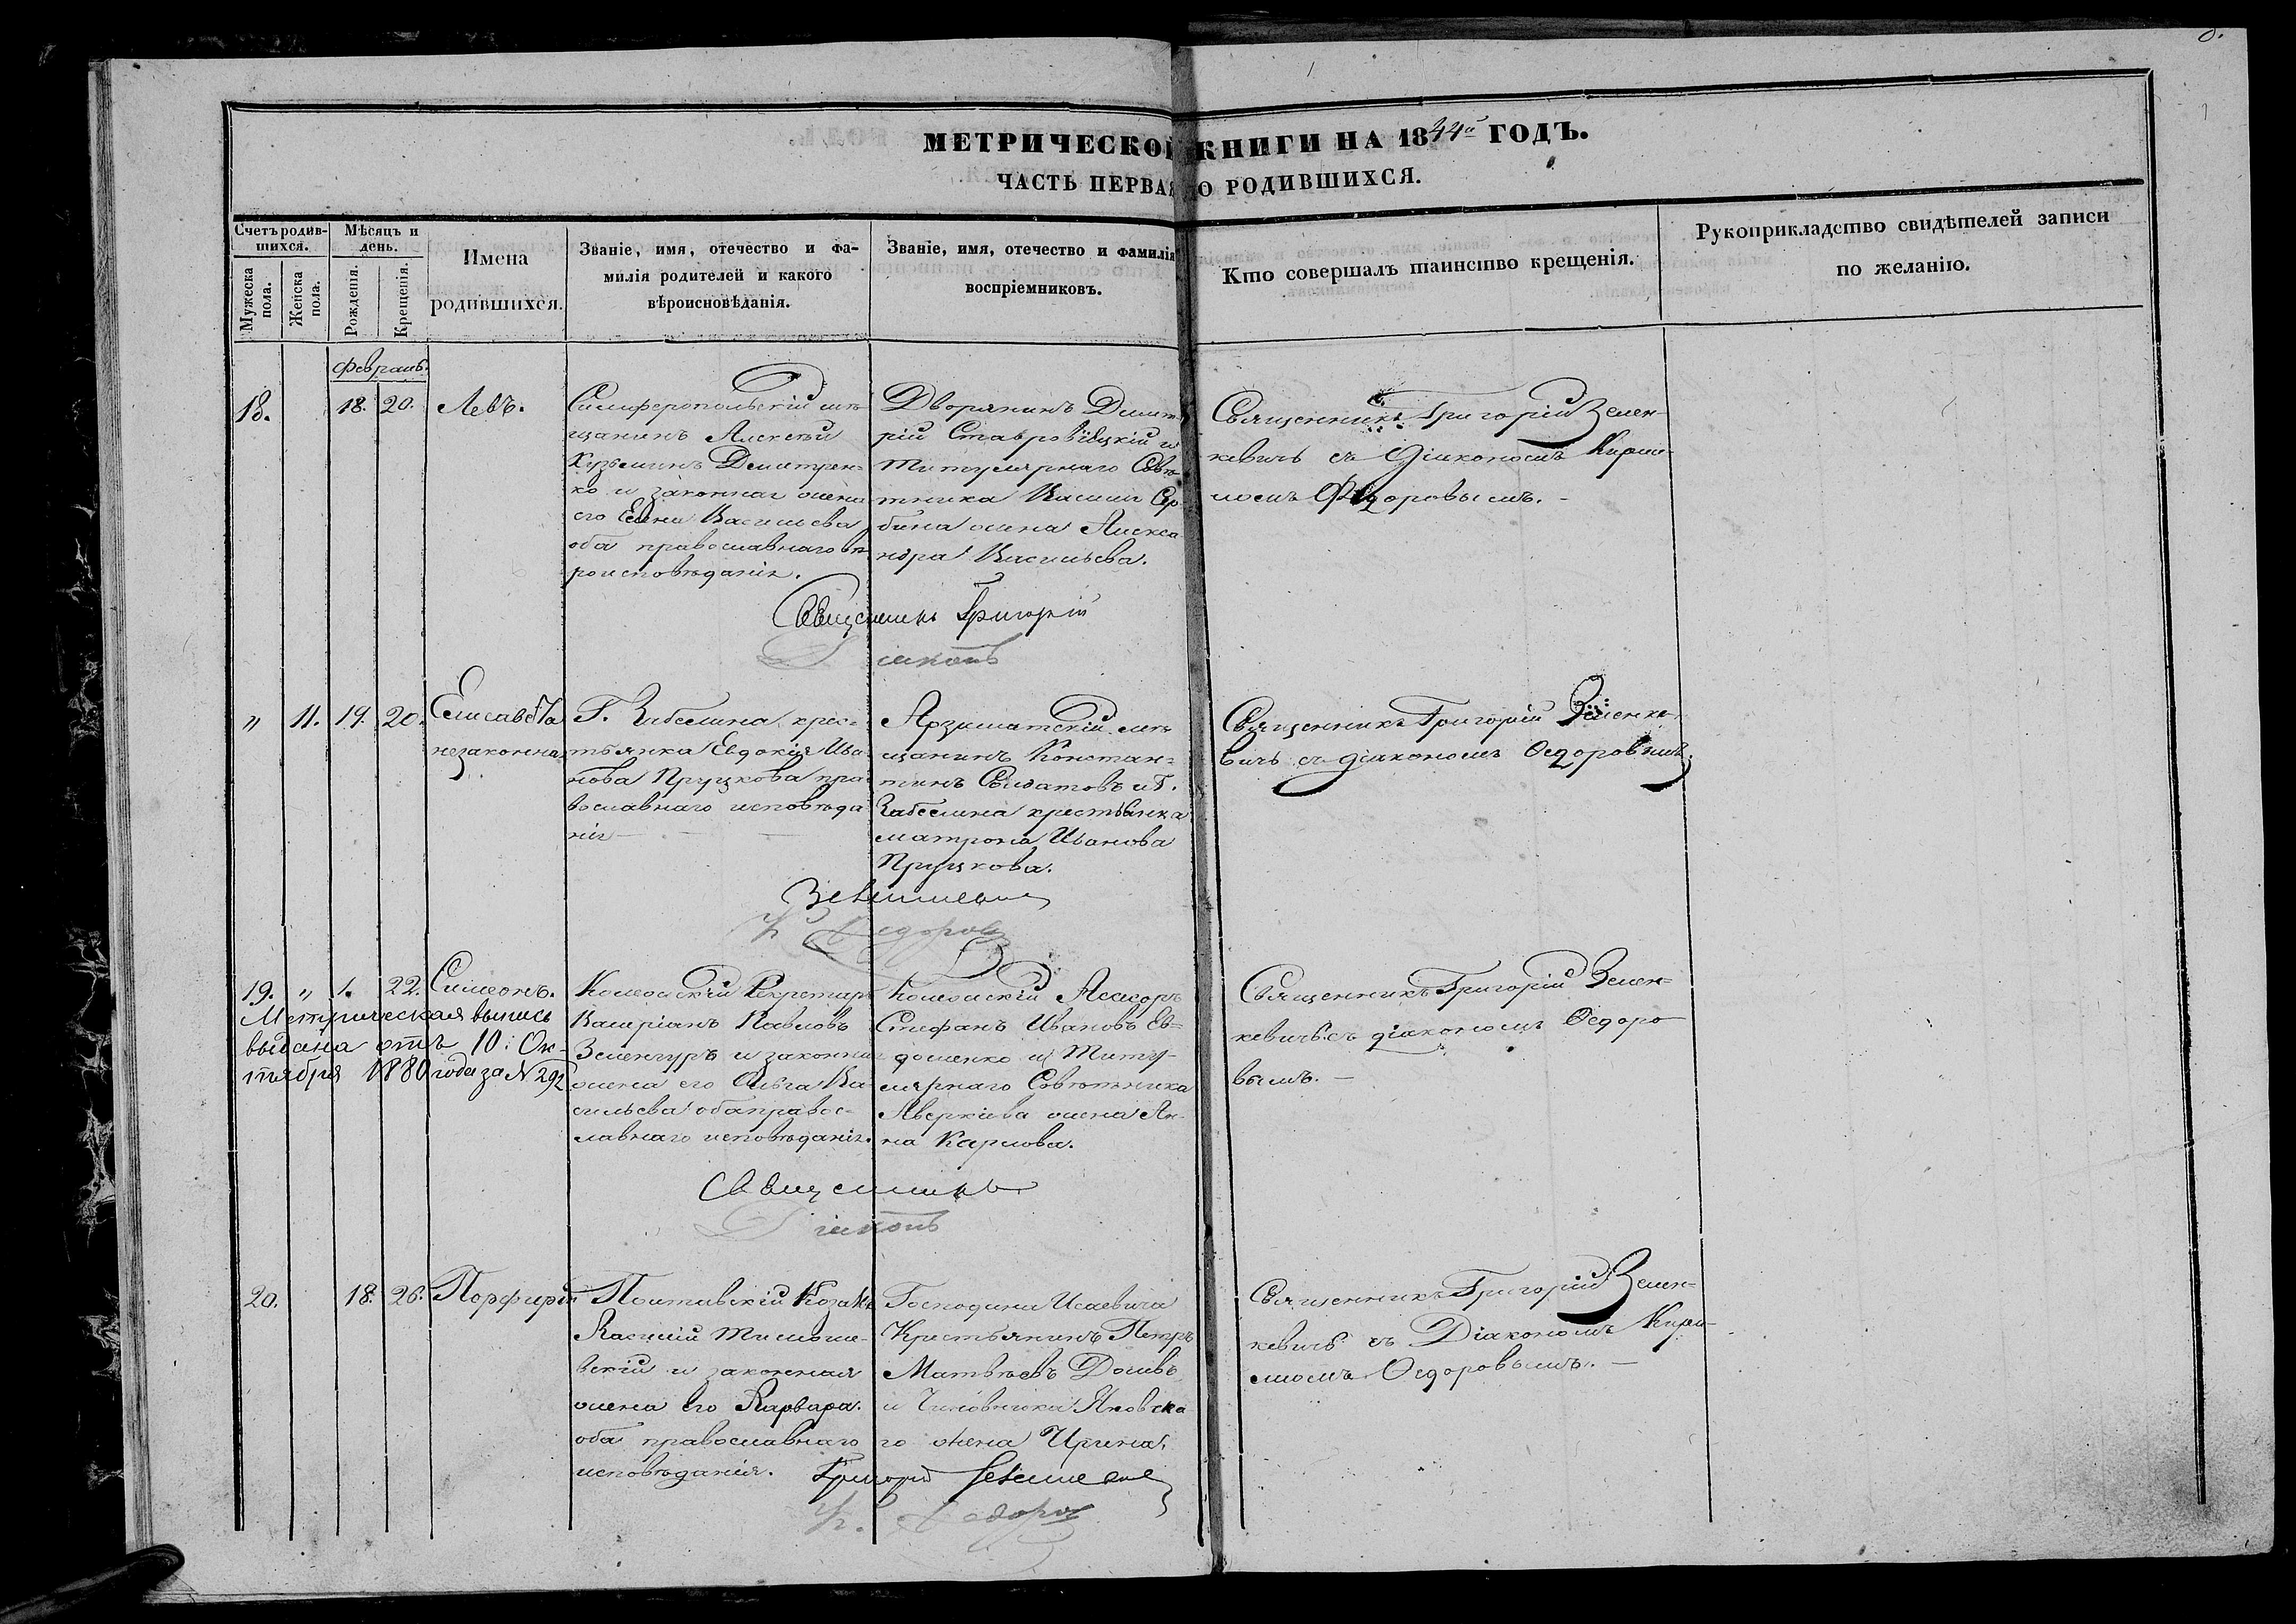 МЕТРИЧЕСКОЙ КНИГИ НА 1844й ГОДЪ.
ЧАСТЬ ПЕРВАЯ О РОДИВШИХСЯ.
Счетъ родив-
шихся.
Мужеска
пола.
Женска
пола.
Мѣсяцъ и
день.
Рожденія.
Крещенія.
Имена
родившихся.
Званіе, имя, отечество и фа-
милія родителей и какого
вѣроисповѣданія.
Званіе, имя, отечество и фамилія
воспріемниковъ.
Кто совершалъ таинство крещенія.
Рукоприкладство свидѣтелей записи
по желанію.
Февраль.
18.
18. 20.
Левъ.
Симферопольскій мѣ
щанинъ Алексѣй
Кузьминъ Димитрен-
ко и законная жена
его Елена Васильева
оба православнаго вѣ
роисповѣданія.
Дворянинъ Димит
рій Ставровецкій и
Титулярнаго Совѣ
тника Василія
жена Алекса
ндра Васильева.
Священникъ Григорій Зелен-
кевичъ съ Діакономъ Кирил-
ломъ Федоровымъ.
Священникъ Григорій
Діаконъ
" 11. 19. 20.
Елисавета
незаконна
Г. Забелина крес-
тьянка Евдокія Ива
нова Пруцкова пра
вославнаго исповѣда
нія
мѣ
щанинъ Констан-
тинъ и Г.
Забелина крестьянка
Матрона Иванова
Пруцкова.
Священникъ Григорій Зеленке-
вичъ съ діакономъ Ѳедоровымъ.
Зеленкевичъ
К. Федоровъ
19. " 1. 22.
Симеонъ.
Метрическая выпись
выдана отъ 10: Ок-
тября 1880 года за № 292
Коллежскій Секретарь
Валеріанъ Павловъ
Зеленгуръ и законная
жена его Ольга Ва-
сильева оба правос-
лавнаго исповѣданія.
Коллежскій Асессоръ
Стефанъ Ивановъ Ев-
доменко и Титу-
лярнаго Совѣтника
Аверкіева жена Ан-
на Карлова.
Священникъ Григорій Зелен-
кевичъ съ діакономъ Ѳедоро
вымъ.
Священникъ
Діаконъ
20.
18. 26.
Порфирій
Полтавскій Козакъ
Василій Тимоше-
вскій и законная
жена его Варвара.
оба православнаго
исповѣданія.
Господина Исаевича
Крестьянинъ Петръ
Матвѣевъ
и Чиновника Яновска
го жена Ирина.
Священникъ Григорій Зелен-
кевичъ съ Діакономъ Кири-
лломъ Ѳедоровымъ.
Григорій Зеленкевичъ
К. Федоровъ